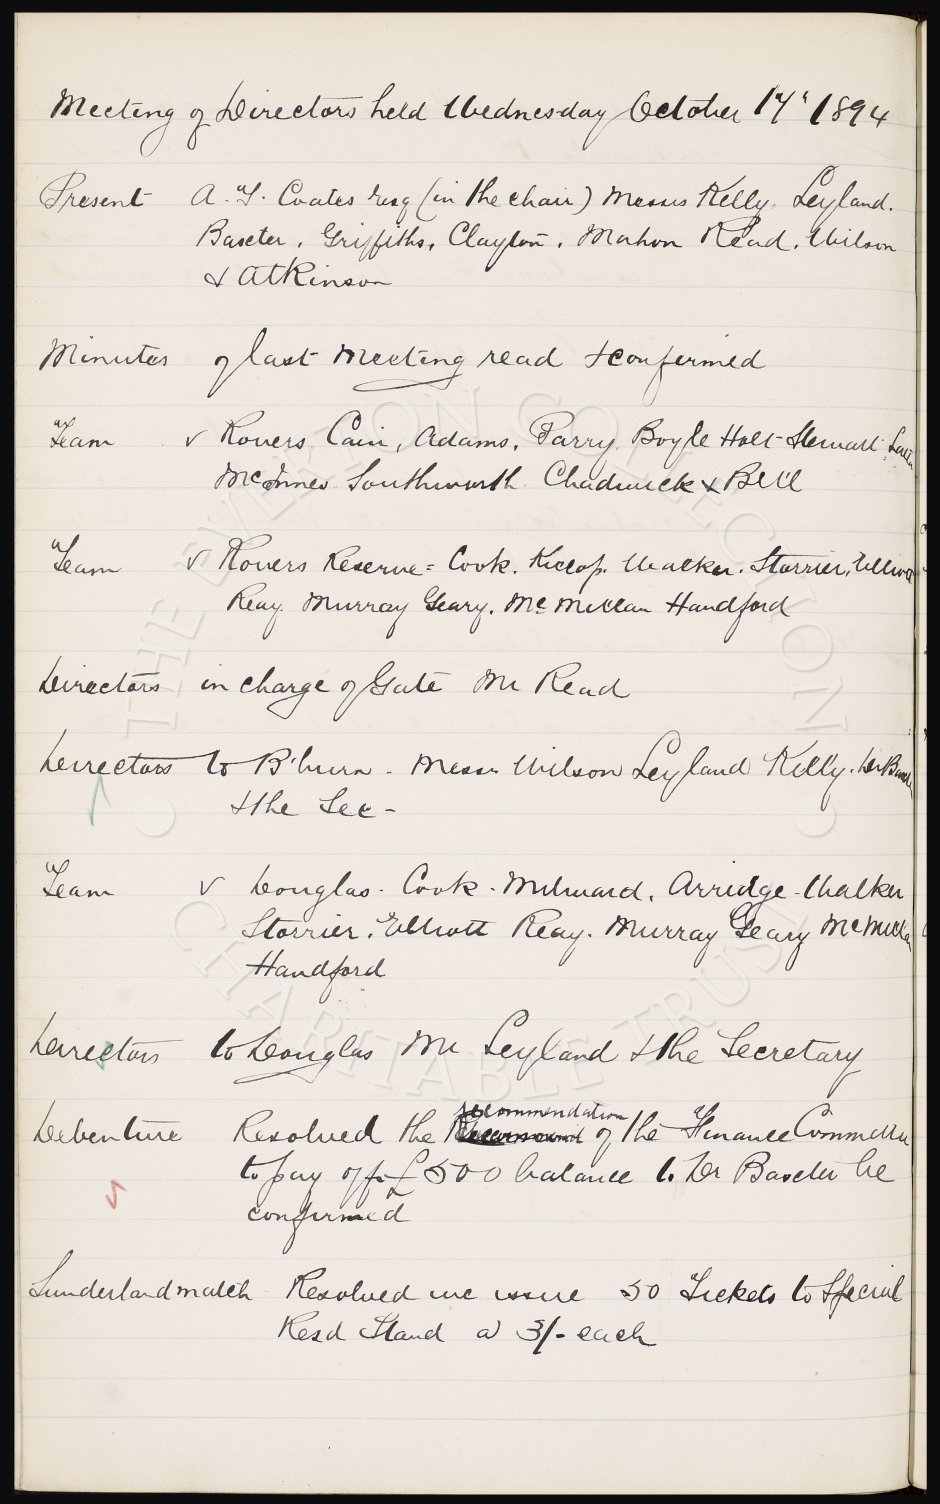 Meeting of Directors held Wednesday October 17th 1894
Present A. T. Coates Esq (in the chair) Messrs Kelly. Leyland.
Baxter. Griffiths. Clayton. Mahon Read. Wilson
& Atkinson
Minutes of last Meeting read & confirmed
Team v Rovers Cain, Adams, Parry Boyle Holt Stewart
McInnes Southworth Chadwick & Bell
Team v Rovers Reserve = Cook. Kislop. Walker. Storrier, Elliott
Reay. Murray Geary. McMillan Handford
Directors in charge of Gate Mr Read
Directors to B'burn. Messrs Wilson Leyland Kelly. Dr Baxter
& the Sec -
Team v Douglas. Cook. Milward. Arridge. Walker
Storrier. Elliott Reay. Murray Geary McMillan
Handford
Directors to Douglas Mr Leyland & the Secretary
Debenture Resolved the recommendation of the Finance Committee
to pay off £500 balance to Dr Baxter be
confirmed
Sunderland match Resolved we issue 50 Tickets to Special
Resd Stand @ 3/- each
THE EVERTON COLLECTION
CHARITABLE TRUST